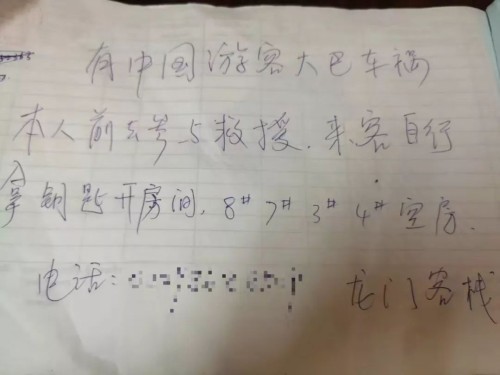 有中国游客大巴车祸
本人前去参与救援.来客自行
拿钥匙开房间,8# 7# 3# 4# 空房.
电话: 龙门客栈